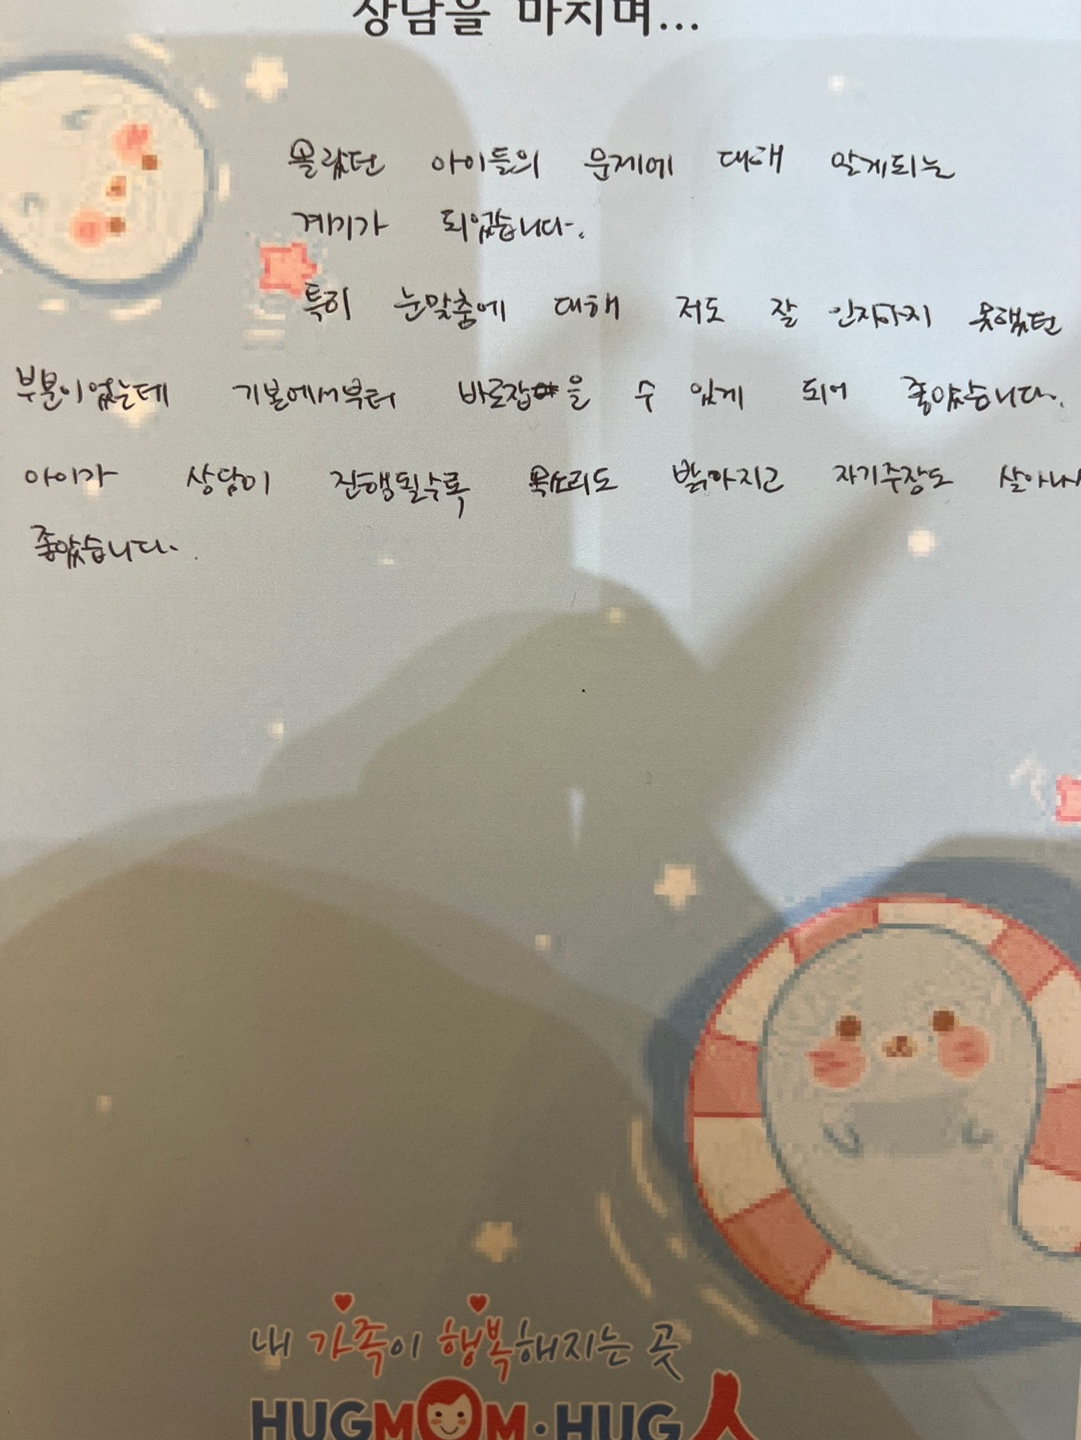 상담을 마치며...
몰랐던 아이들의 문제에 대해 알게되는
계기가 되었습니다.
특히 눈맞춤에 대해 저도 잘 인지하지 못했던
부분이었는데 기본에서부터 바로잡을 수 있게 되어 좋았습니다.
아이가 상담이 진행될수록 목소리도 밝아지고 자기주장도 살아나서
좋았습니다.
내 가족이 행복해지는 곳
HUGMOM·HUG人